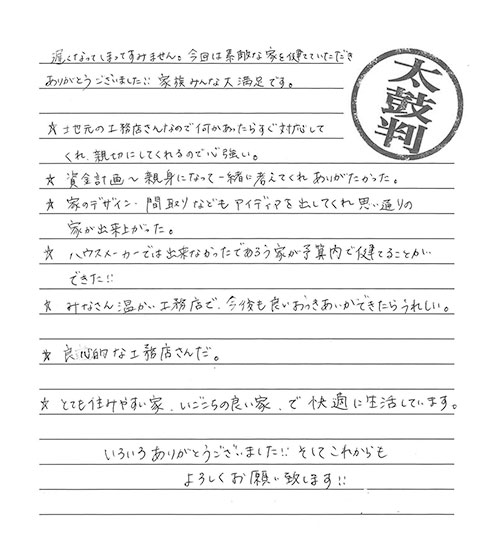 遅くなってしまってすみません。今回は素敵な家を建てていただき
ありがとうございました!! 家族みんな大満足です。
太鼓判
☆ 地元の工務店さんなので何かあったらすぐ対応して
くれ、親切にしてくれるので心強い。
★ 資金計画〜親身になって一緒に考えてくれありがたかった。
★ 家のデザイン・間取りなどもアイディアを出してくれ思い通りの
家が出来上がった。
★ ハウスメーカーでは出来なかったであろう家が予算内で建てることが
できた!!
★ みなさん温かい工務店で、今後も良いおつきあいができたらうれしい。
★ 良心的な工務店さんだ。
☆ とても住みやすい家、いごこちの良い家、で快適に生活しています。
いろいろありがとうございました!! そしてこれからも
よろしくお願い致します!!